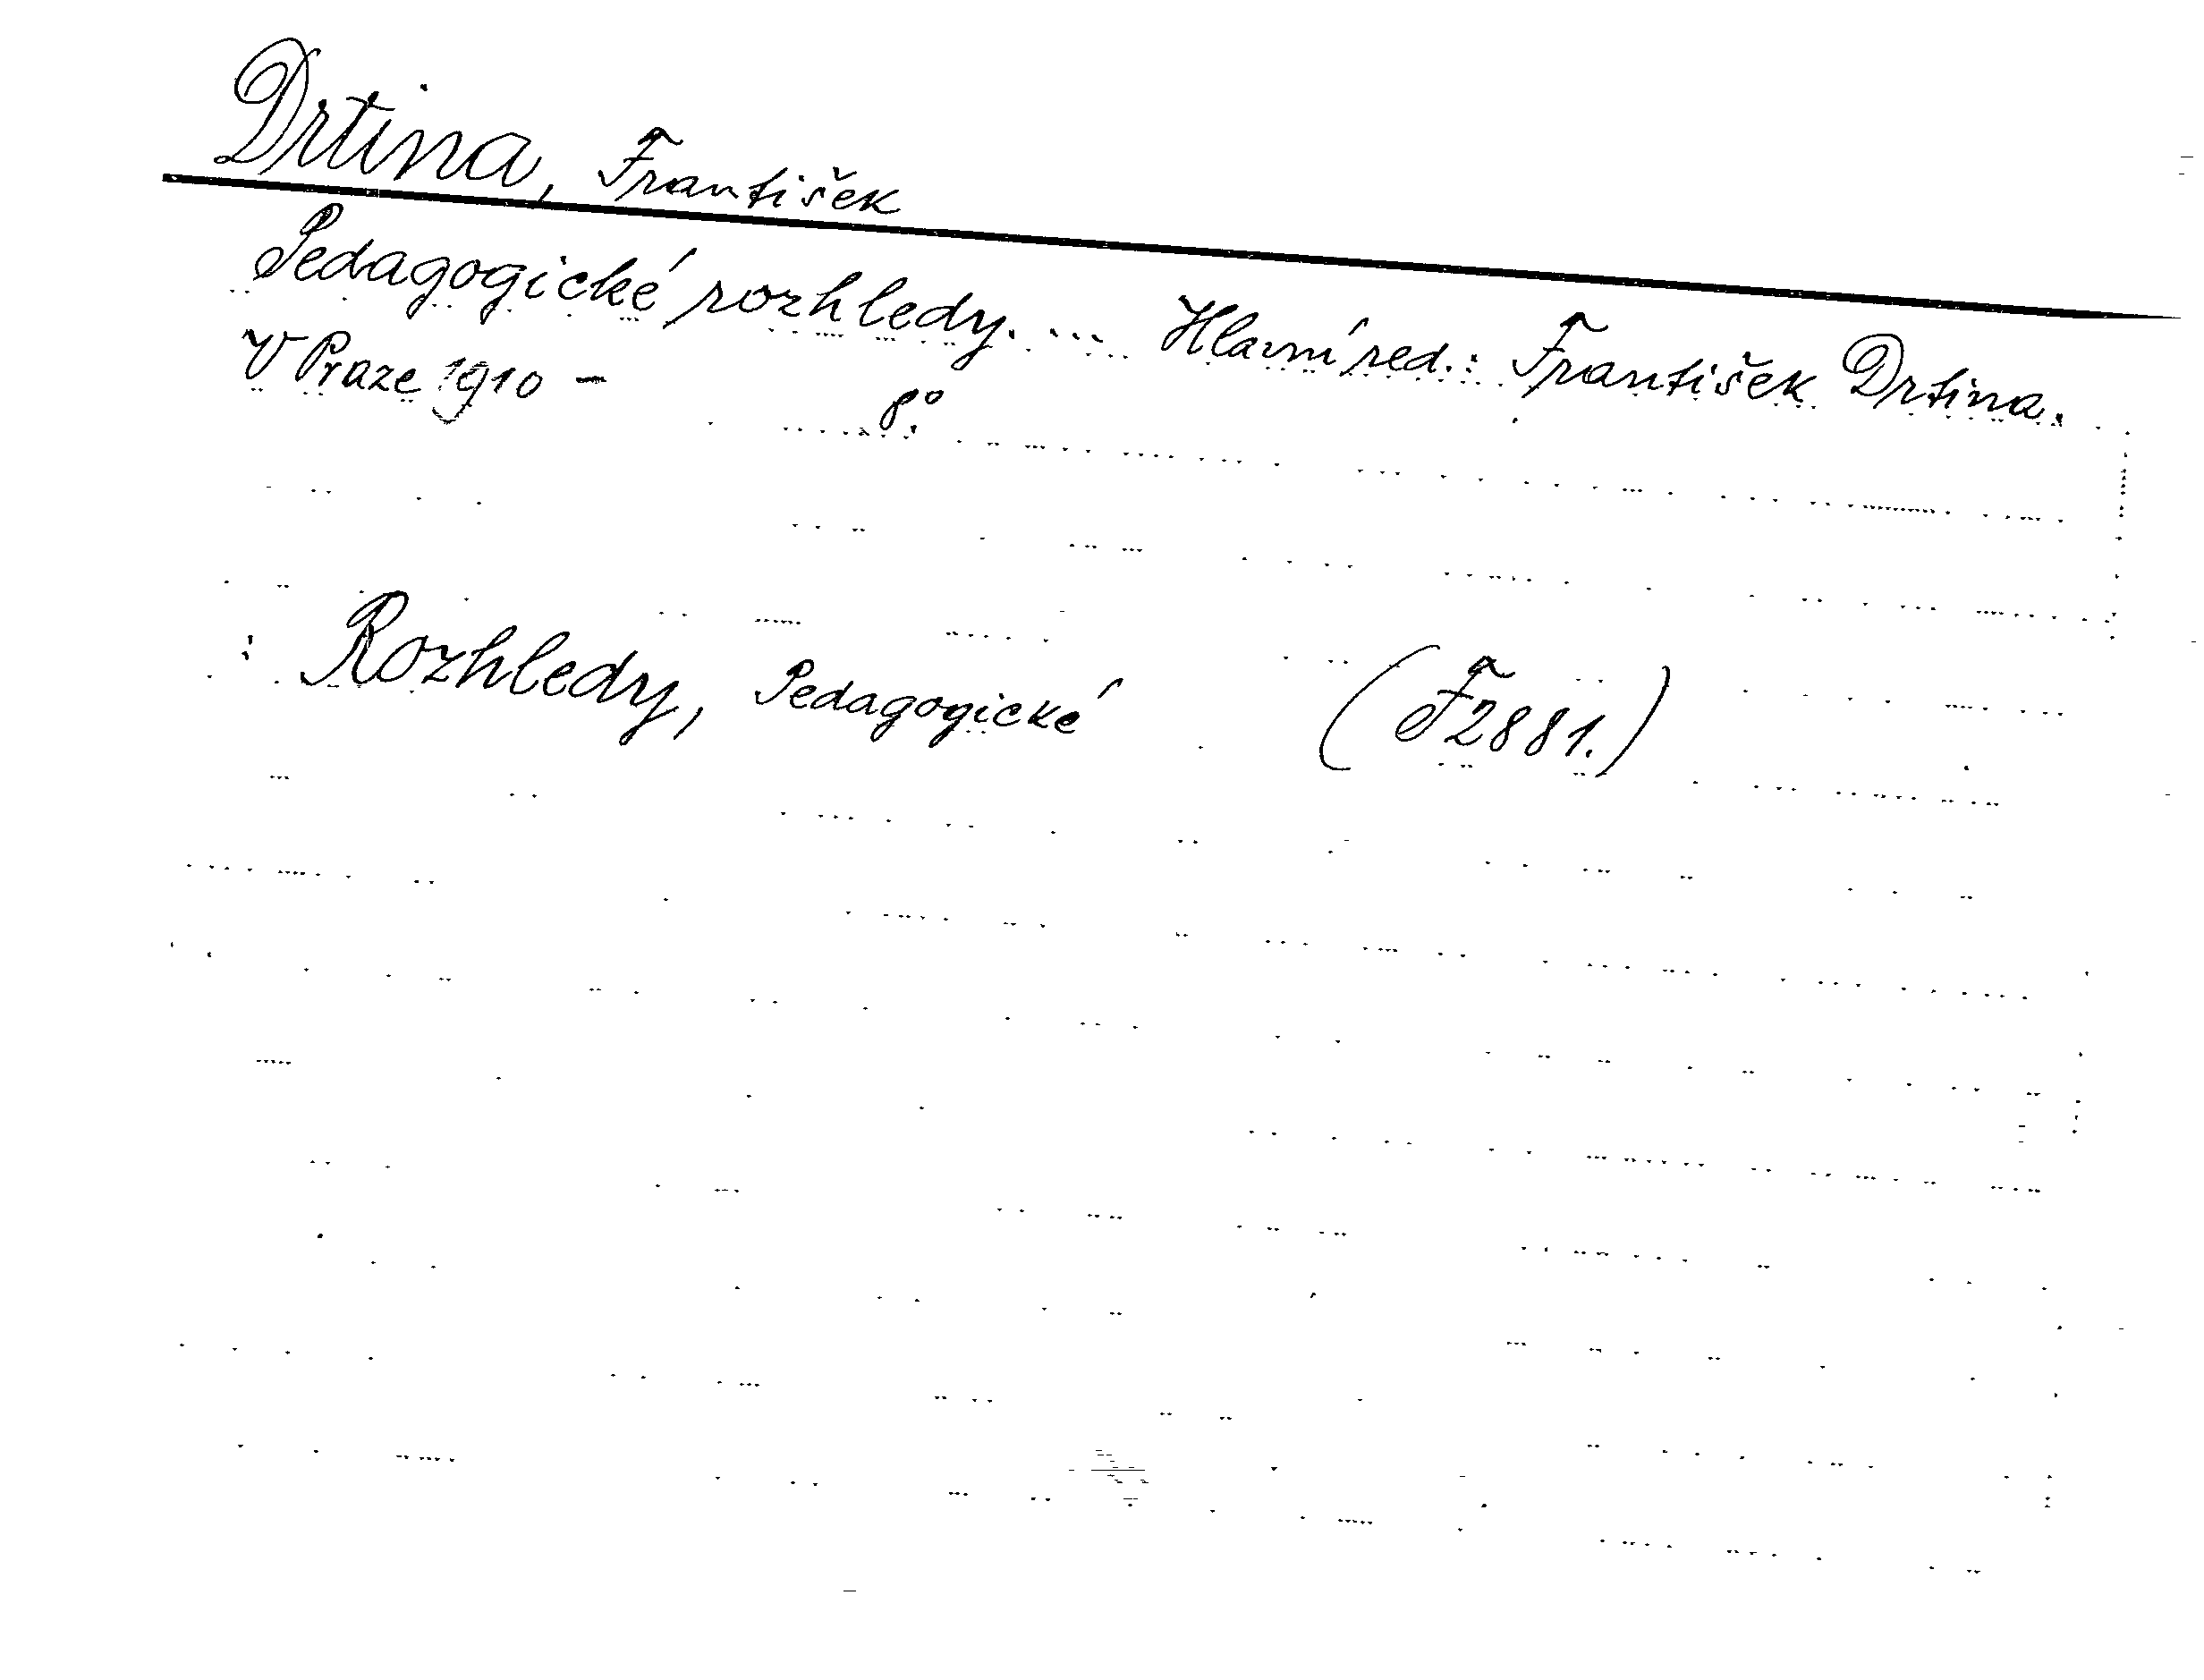 Drtina, František
Pedagogické rozhledy. ... Hlavní red.: František Drtina.
V Praze 1910 - 8°.
: Rozhledy, Pedagogické (F2881.)